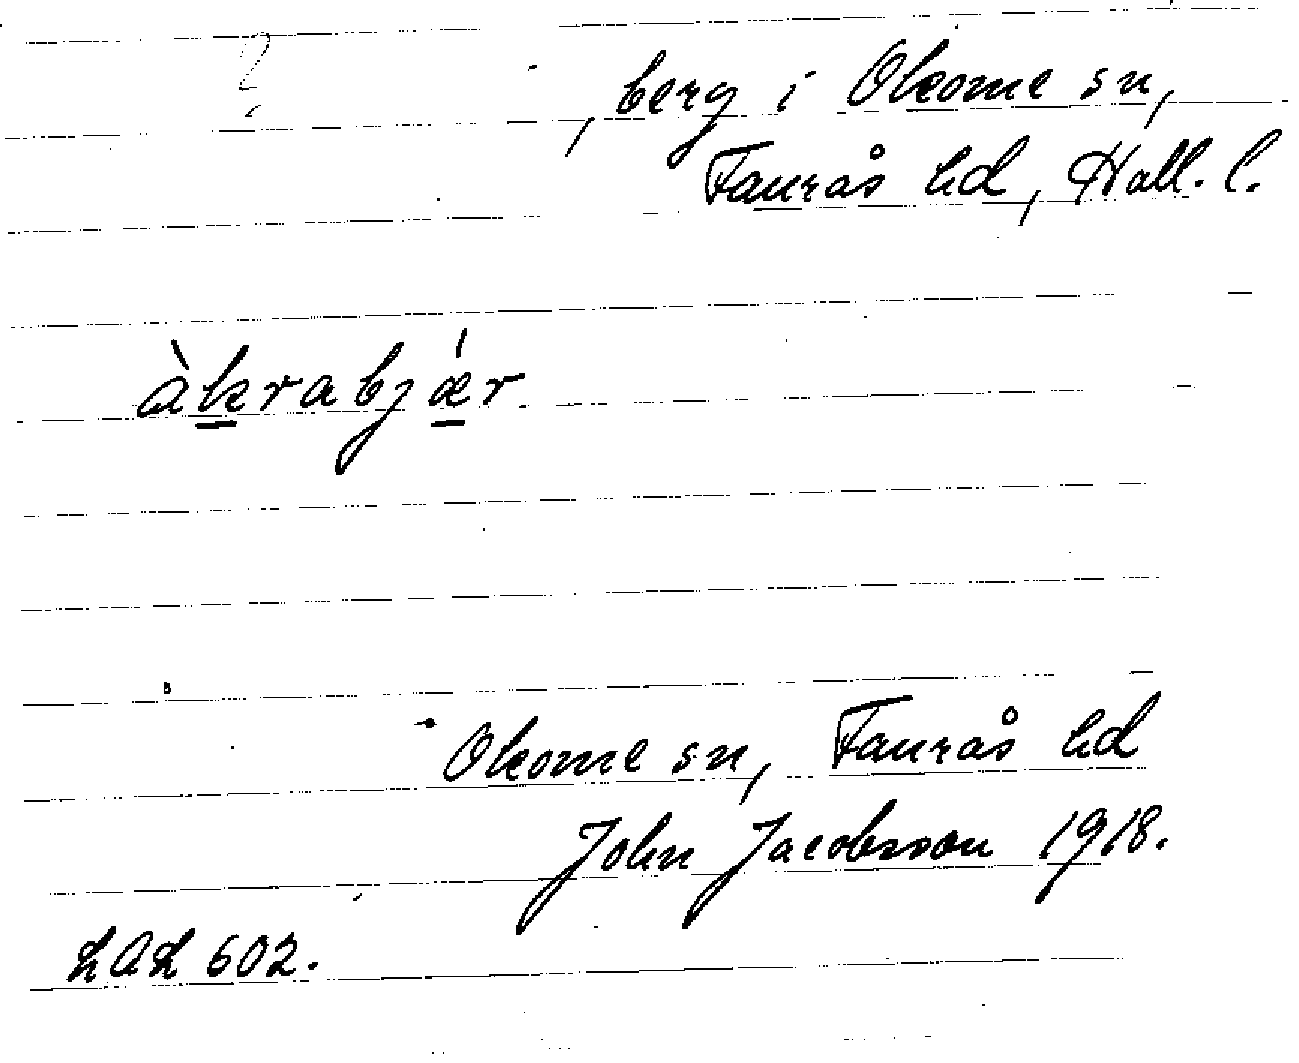 ?
, berg i Okome sn,
Faurås hd, Hall. l.
àkrabjǽr.
Okome sn, Faurås hd
John Jacobsson 1918.
LAL 602.